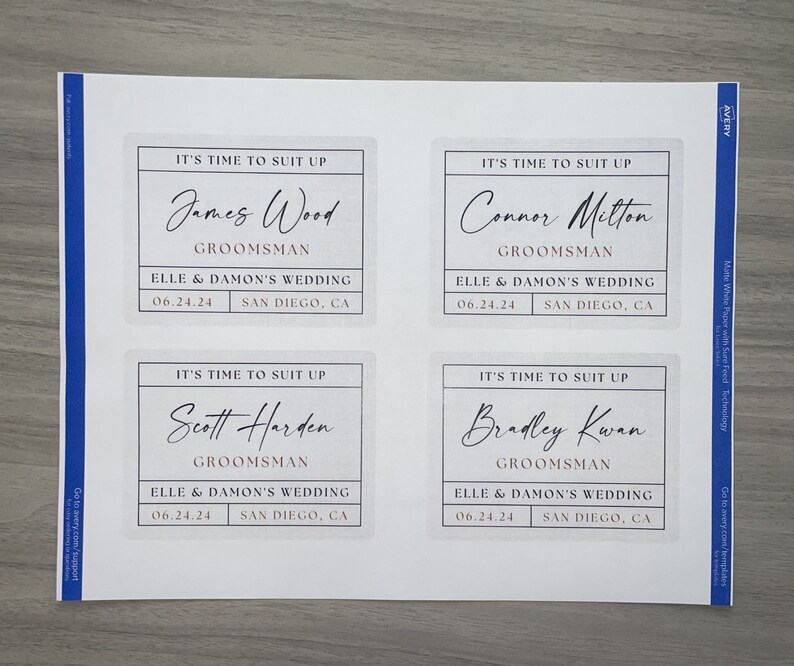 IT'S TIME TO SUIT UP
James Wood
GROOMSMAN
ELLE & DAMON'S WEDDING
06.24.24
SAN DIEGO, CA
IT'S TIME TO SUIT UP
Connor Milton
GROOMSMAN
ELLE & DAMON'S WEDDING
06.24.24
SAN DIEGO, CA
IT'S TIME TO SUIT UP
Scott Harden
GROOMSMAN
ELLE & DAMON'S WEDDING
06.24.24
SAN DIEGO, CA
IT'S TIME TO SUIT UP
Bradley Kwan
GROOMSMAN
ELLE & DAMON'S WEDDING
06.24.24
SAN DIEGO, CA
Pat. avery.com/patents
Go to avery.com/support
AVERY
Matte White Paper with Sure Feed Technology
Go to avery.com/templates
for templates